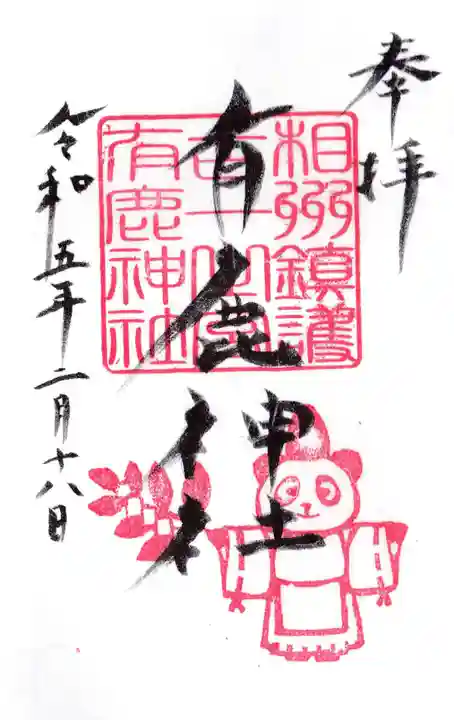 奉拝
有鹿神社
相州鎮護
有鹿神社
令和五年二月十八日